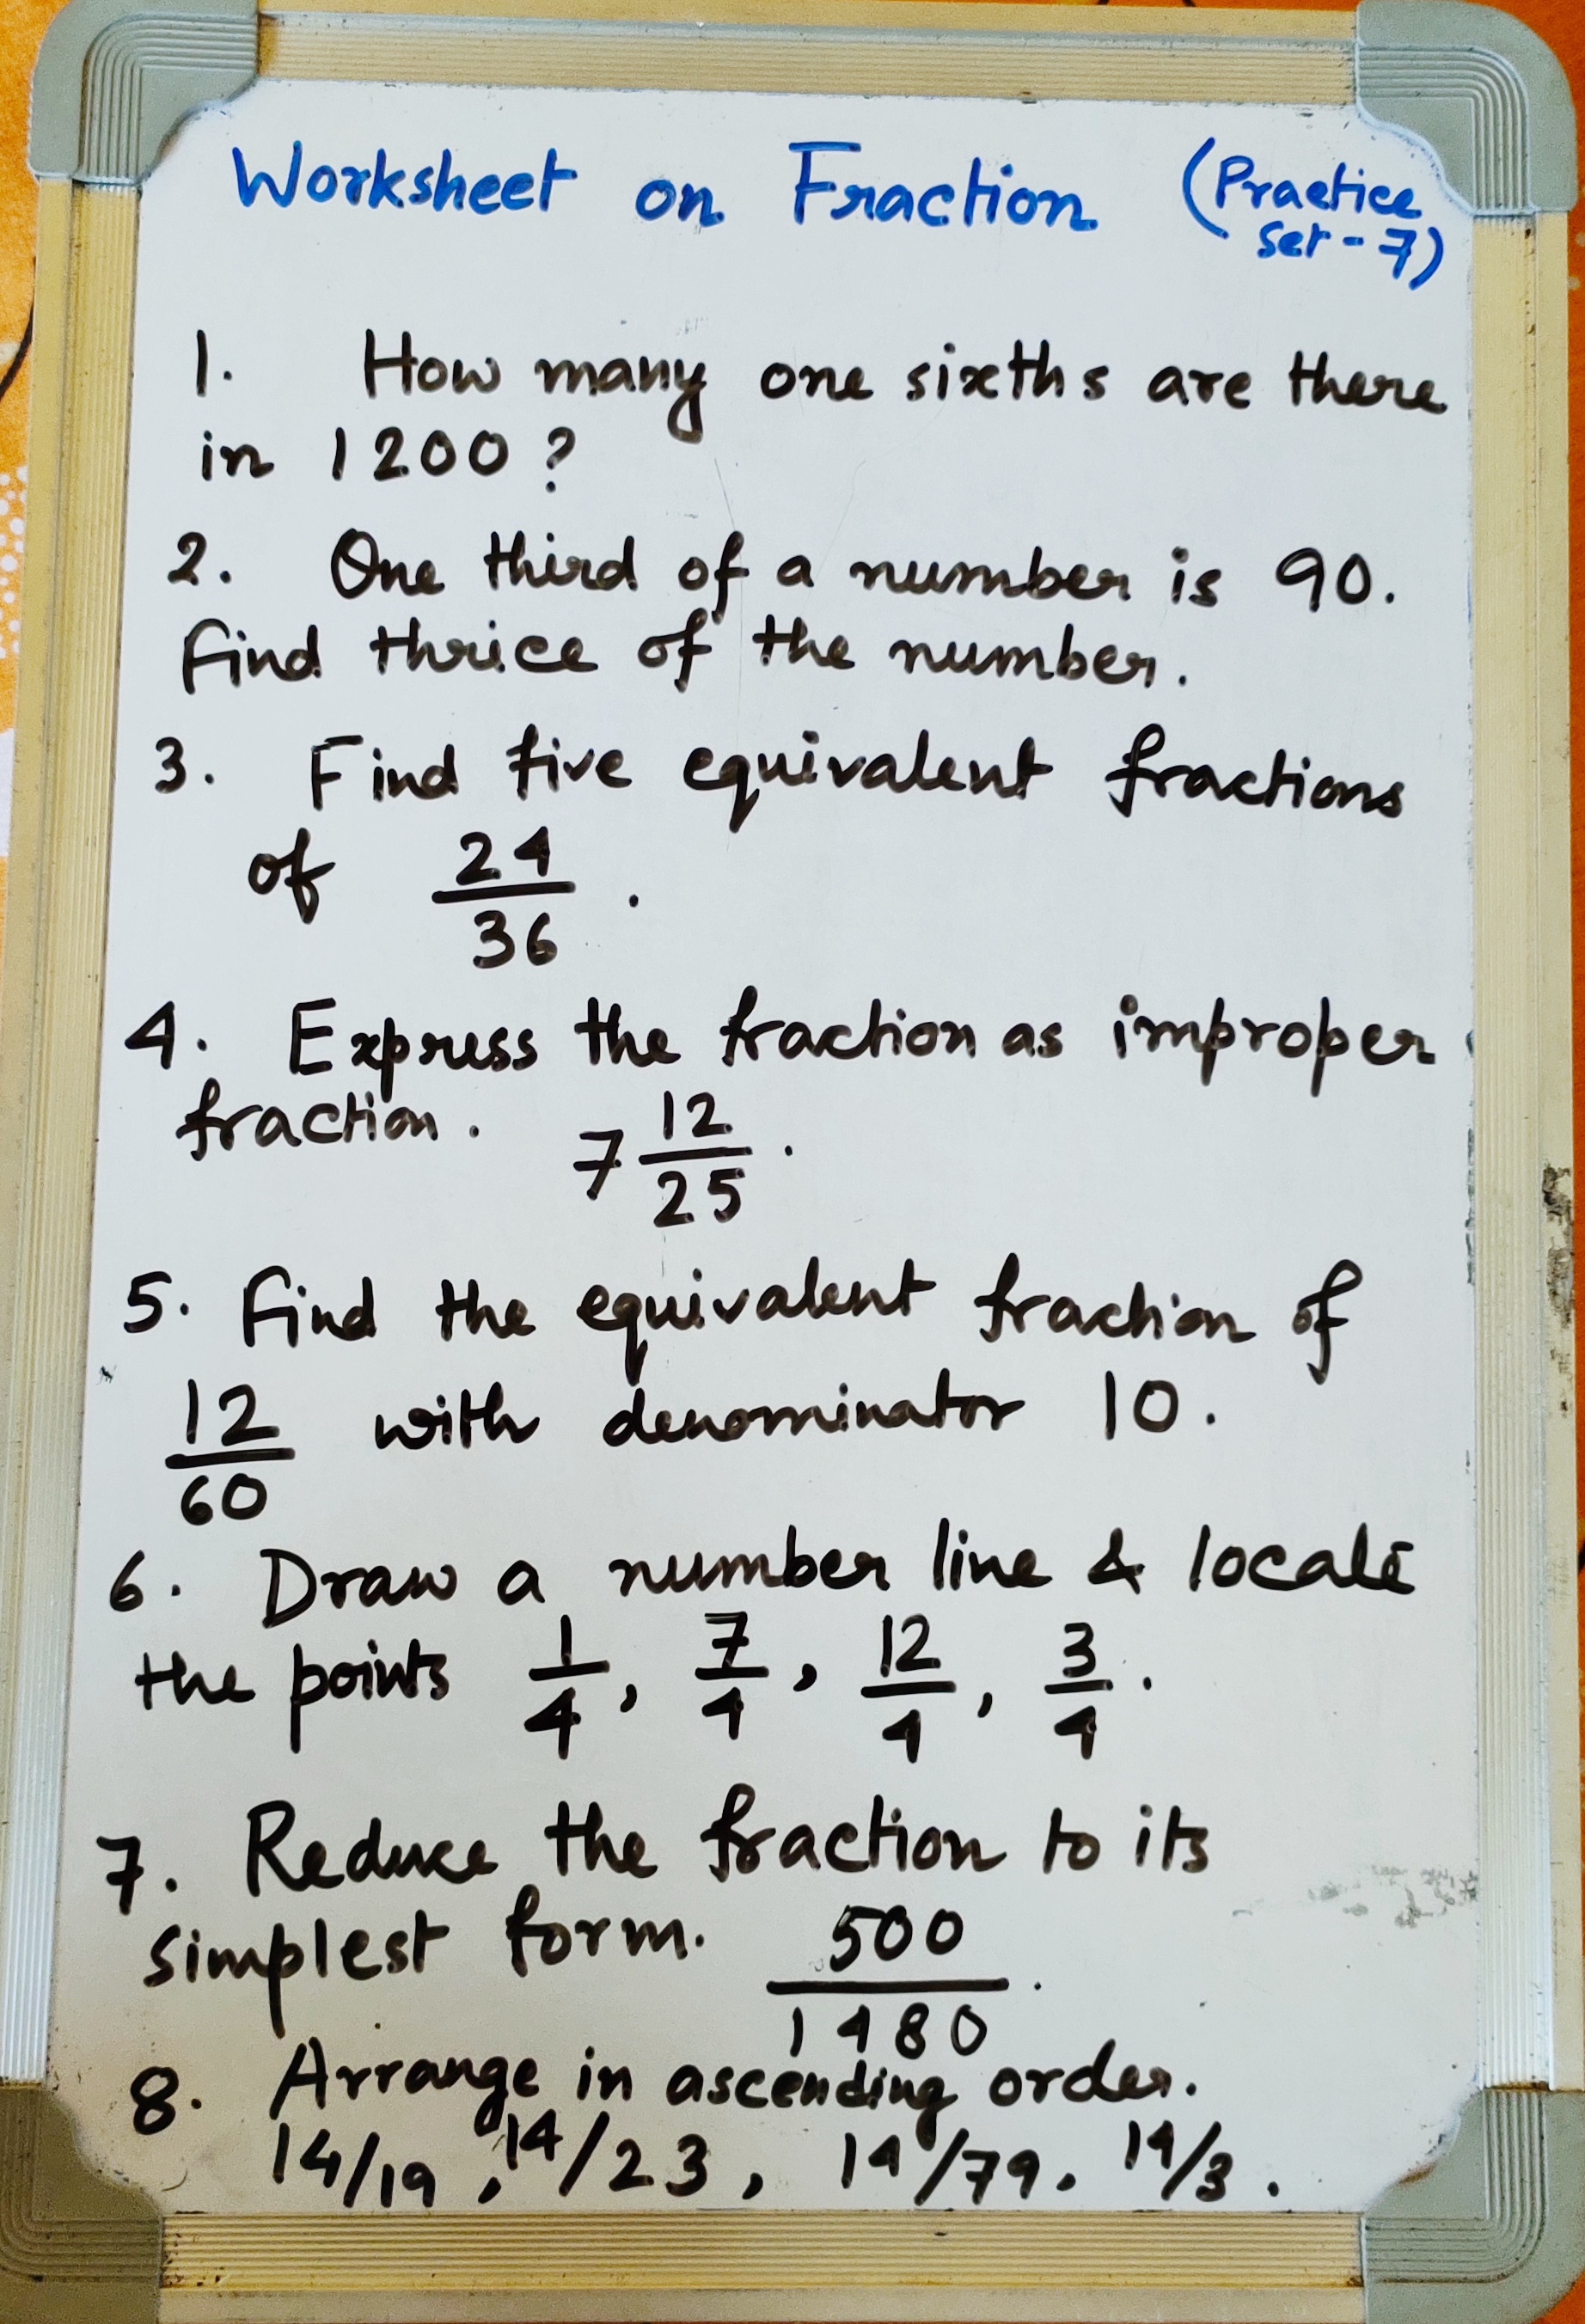 Worksheet on Fraction (Practice
Set - 7)
1. How many one sixths are there
in 1200 ?
2. One third of a number is 90.
Find thrice of the number.
3. Find five equivalent fractions
of 24/36 .
4. Express the fraction as improper
fraction. 7 12/25 .
5. Find the equivalent fraction of
12/60 with denominator 10.
6. Draw a number line & locate
the points 1/4, 7/4, 12/4, 3/4.
7. Reduce the fraction to its
simplest form. 500/1480 .
8. Arrange in ascending order.
14/19, 14/23, 14/79, 14/3.